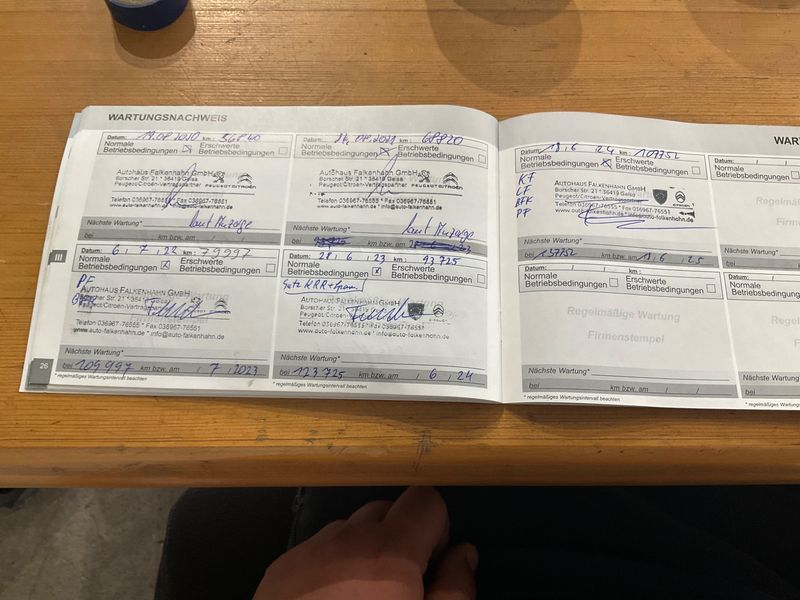 WARTUNGSNACHWEIS
Datum: 19.08.2020 km: 56840
Normale Betriebsbedingungen Erschwerte Betriebsbedingungen
AUTOHAUS FALKENHAHN GMBH
Borscher Str. 21 * 36419 Geisa
Peugeot/Citroën-Vertragspartner PEUGEOT CITROËN
Telefon 036967-76555 * Fax 036967-76551
www.auto-falkenhahn.de * info@auto-falkenhahn.de
Nächste Wartung* laut Anzeige
bei km bzw. am
Datum: 24.08.2021 km: 68820
Normale Betriebsbedingungen Erschwerte Betriebsbedingungen
AUTOHAUS FALKENHAHN GMBH
Borscher Str. 21 * 36419 Geisa
Peugeot/Citroën-Vertragspartner PEUGEOT CITROËN
Telefon 036967-76555 * Fax 036967-76551
www.auto-falkenhahn.de * info@auto-falkenhahn.de
Nächste Wartung* laut Anzeige
bei km bzw. am
III
Datum: 6 / 7 / 22 km: 79997
Normale Betriebsbedingungen Erschwerte Betriebsbedingungen
PF
AUTOHAUS FALKENHAHN GMBH
Borscher Str. 21 * 36419 Geisa
Peugeot/Citroën-Vertragspartner
Telefon 036967-76555 * Fax 036967-76551
www.auto-falkenhahn.de * info@auto-falkenhahn.de
Nächste Wartung*
bei 109997 km bzw. am / 7 / 2023
Datum: 28 / 6 / 23 km: 93725
Normale Betriebsbedingungen Erschwerte Betriebsbedingungen
Satz KRR+
AUTOHAUS FALKENHAHN GMBH
Borscher Str. 21 * 36419 Geisa
Peugeot/Citroën-Vertragspartner
Telefon 036967-76555 * Fax 036967-76551
www.auto-falkenhahn.de * info@auto-falkenhahn.de
Nächste Wartung*
bei 123725 km bzw. am / 6 / 24
26
* regelmäßiges Wartungsintervall beachten
* regelmäßiges Wartungsintervall beachten
WART
Datum: 18 / 6 24 km: 107752
Normale Betriebsbedingungen Erschwerte Betriebsbedingungen
KF
LF
BFK
PF
AUTOHAUS FALKENHAHN GMBH
Borscher Str. 21 * 36419 Geisa
Telefon 036967-76555 * Fax 036967-76551
www.auto-falkenhahn.de * info@auto-falkenhahn.de
Nächste Wartung*
bei 137752 km bzw. am 18 / 6 / 25
Datum: / /
Normale Betriebsbedingungen
Regelmä
Firm
Nächste Wartung*
bei
Datum: / / km:
Normale Betriebsbedingungen Erschwerte Betriebsbedingungen
Regelmäßige Wartung
Firmenstempel
Nächste Wartung*
bei km bzw. am / /
* regelmäßiges Wartungsintervall beachten
Datum: / /
Normale Betriebsbedingungen
Regelmä
Firm
Nächste Wartung*
bei
* regelmäßiges Wartung